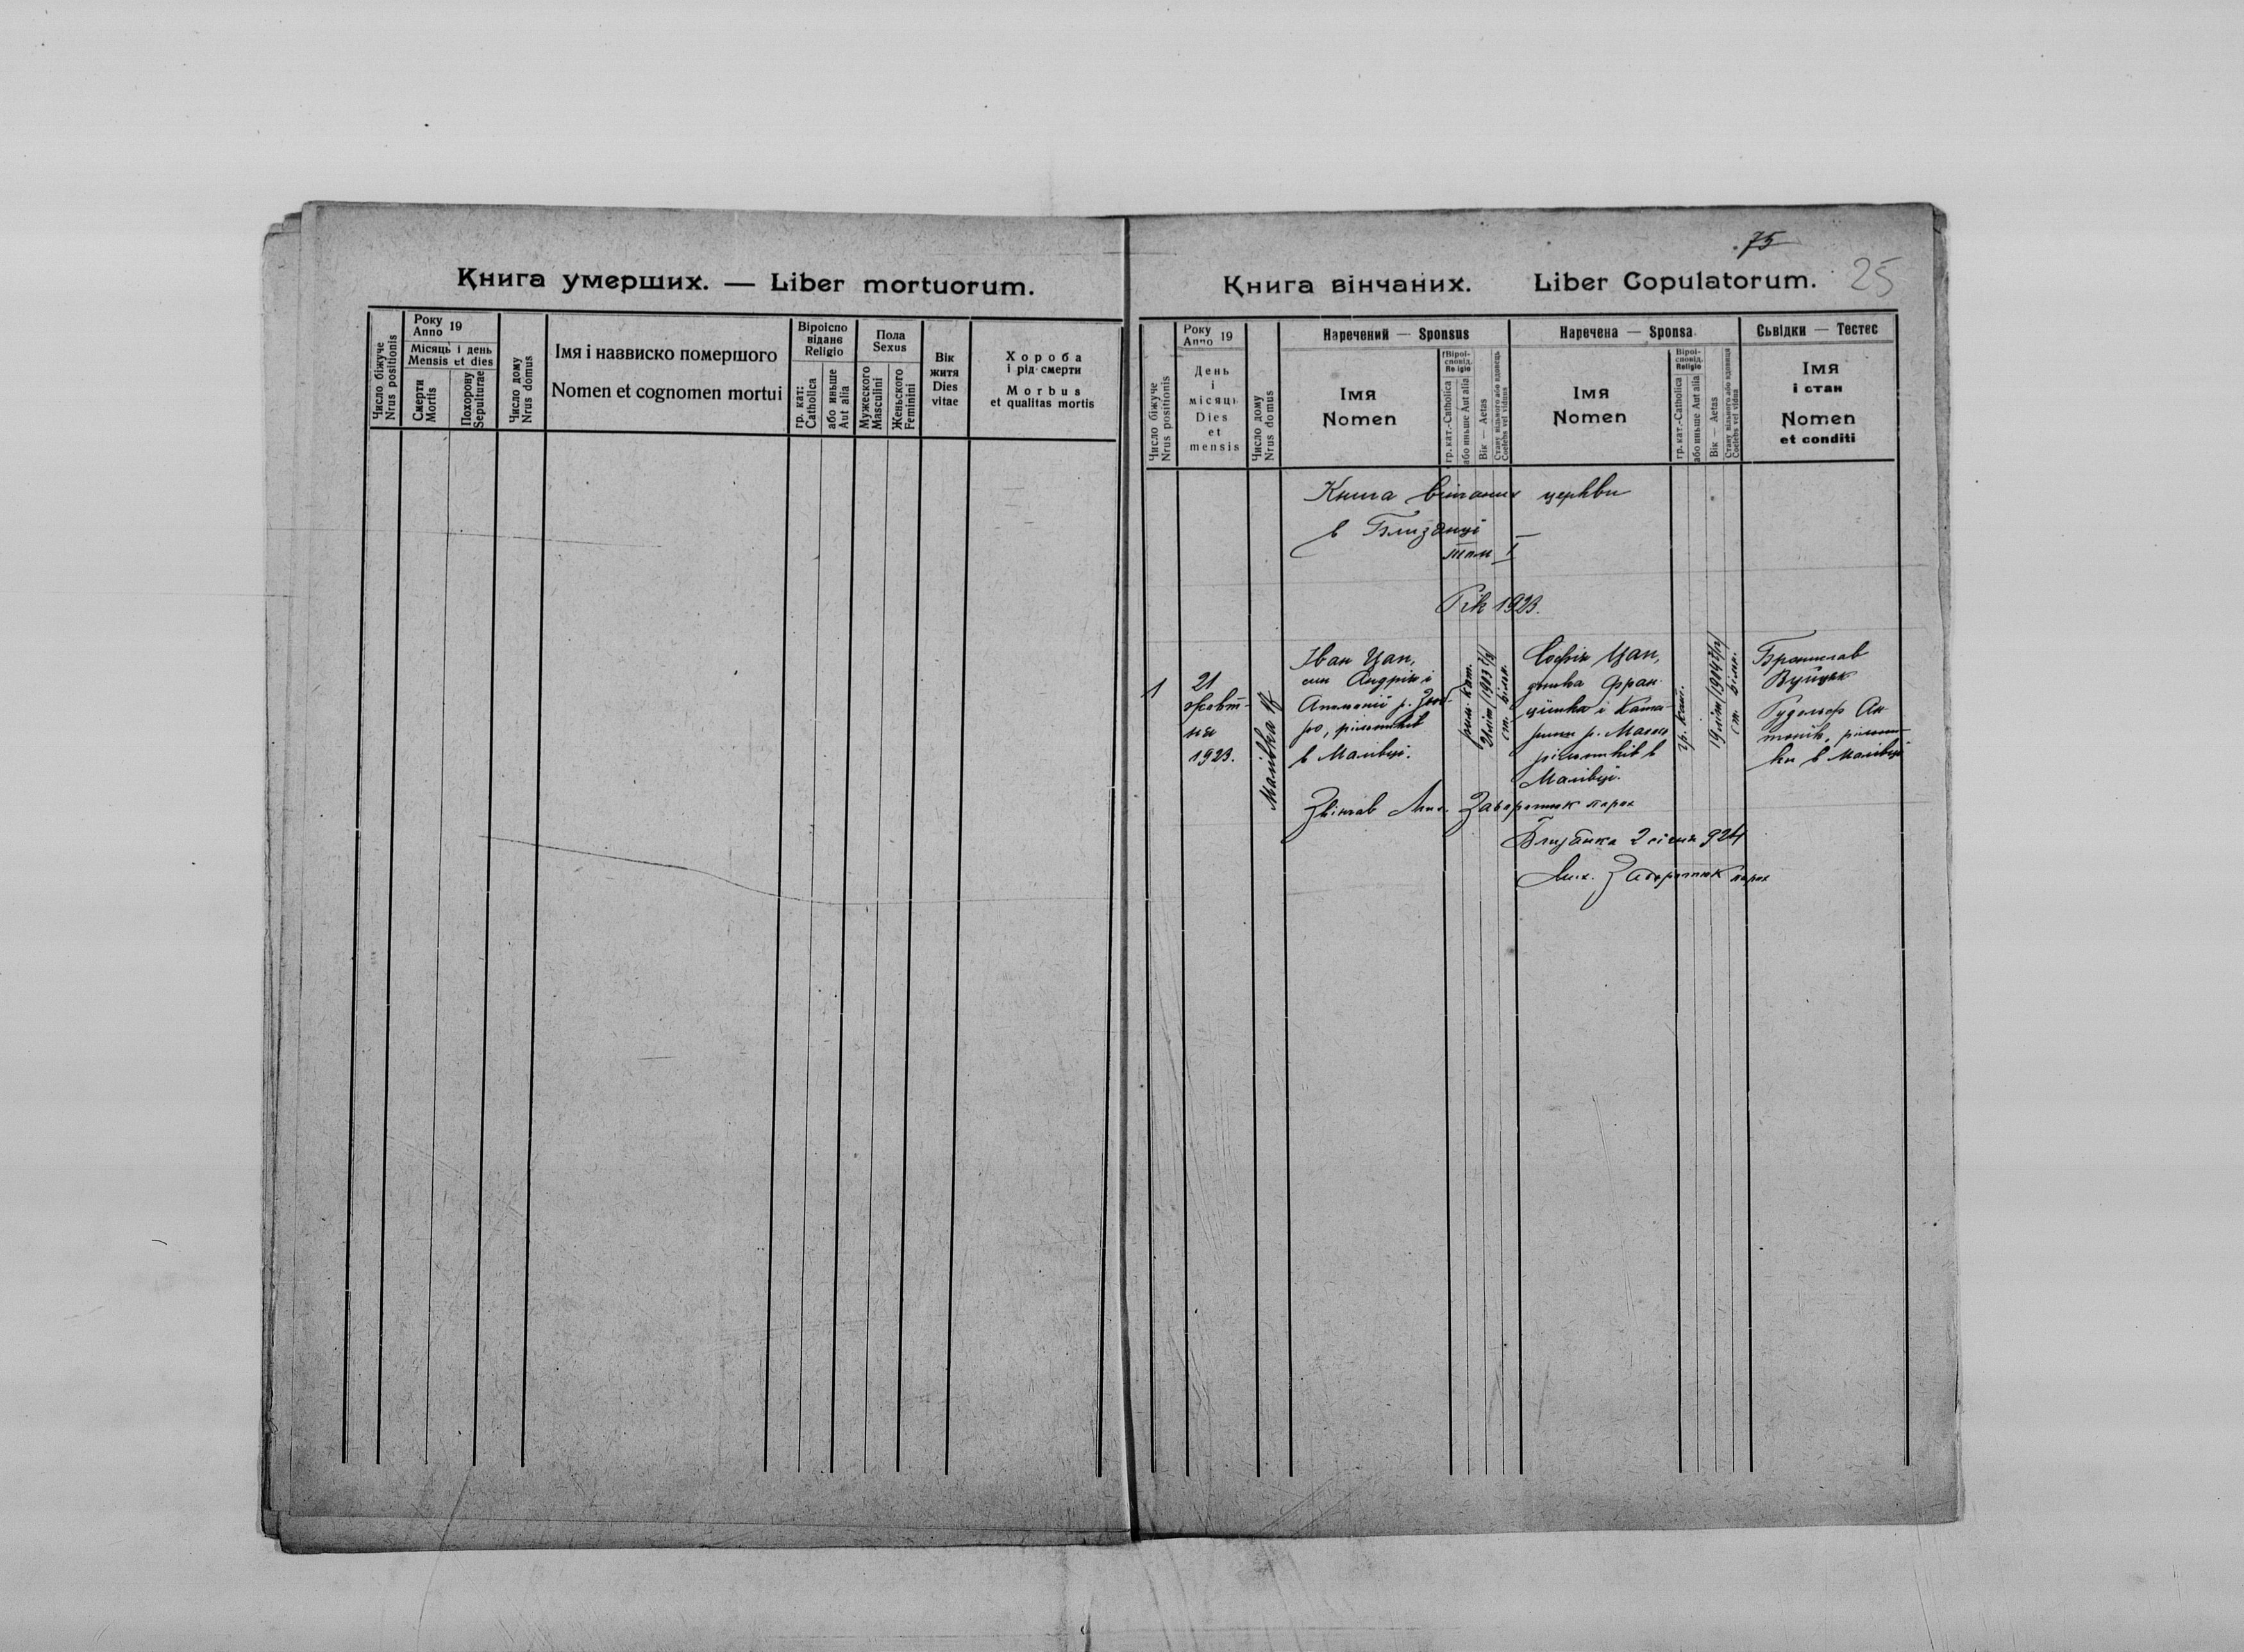 Книга умерших. — Liber mortuorum.
Число біжуче
Nrus positionis
Року
Anno 19
Місяць і день
Mensis et dies
Смерти
Mortis
Похорону
Sepulturae
Число дому
Nrus domus
Імя і назвиско помершого
Nomen et cognomen mortui
Віроіспо
відане
Religio
гр. кат:
Catholica
або инньше
Aut alia
Пола
Sexus
Мужеского
Masculini
Женьского
Feminini
Вік
житя
Dies
vitae
Хороба
і рід смерти
Morbus
et qualitas mortis
75
25
Книга вінчаних. Liber Copulatorum.
Число біжуче
Nrus positionis
Року
Anno 19
День
і
місяць
Dies
et
mensis
Число дому
Nrus domus
Наречений — Sponsus
ІМЯ
Nomen
Віроі-
сповід.
Religio
гр. кат.-Catholica
або инньше Aut alia
Вік — Aetas
Стану вільного або вдовець
Coelebs vel viduus
Наречена — Sponsa
ІМЯ
Nomen
Віроі-
сповід.
Religio
гр. кат.-Catholica
або инньше Aut alia
Вік — Aetas
Стану вільного або вдовиця
Coelebs vel vidua
Сьвідки — Тестес
ІМЯ
і стан
Nomen
et conditi
Книга вінчаних церкви
в Близанці
том I
Рік 1923.
1
21
жовт-
ня
1923.
Малівка
Іван Цап,
син Андрія і
р.
рільників
в Малівці.
рим. кат.
21 літ /1903
ст. вільн.
Софія Цап,
дочка Фран-
цішка і Ката-
рини р.
рільників в
Малівці.
гр. кат.
19 літ /1904
ст. вільн.
Броніслав
Вуйцік
Рудольф Ан-
тонів, рільни-
ки в Малівці
Звінчав Мих. Заворотюк парох
Близанка 2 січня 924
Мих. Заворотюк парох